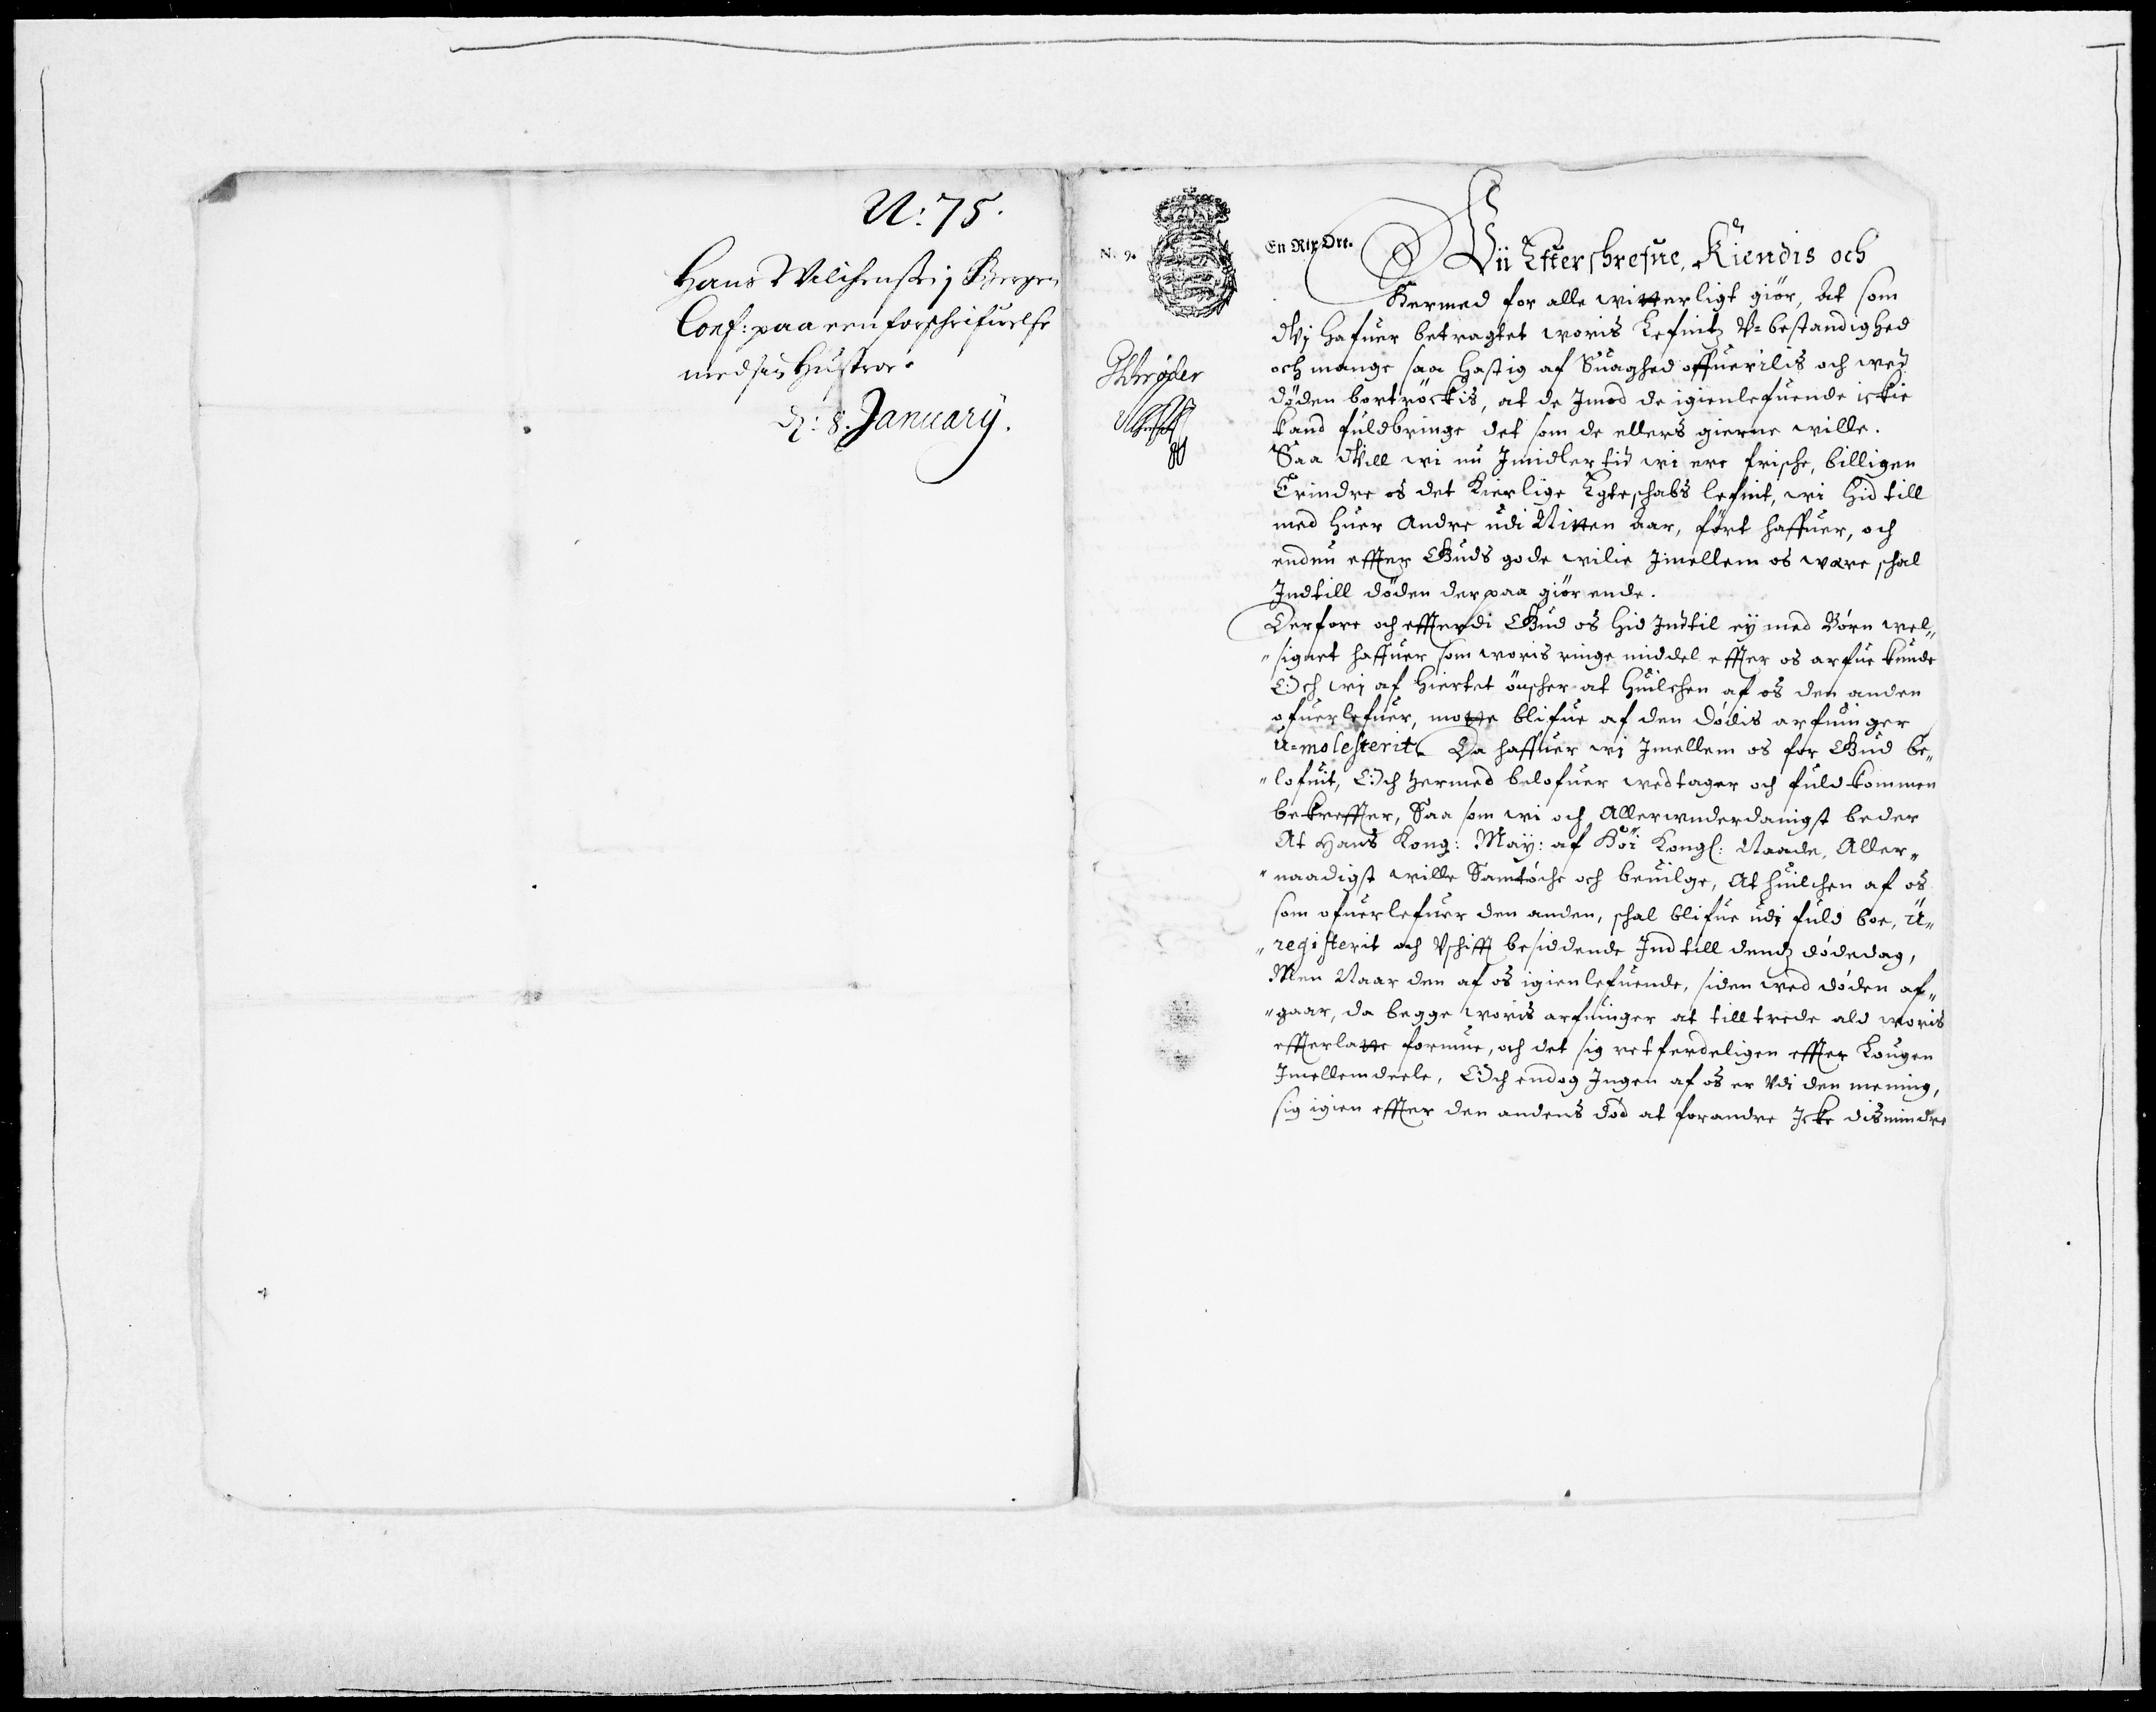 N: 75.
Hans Wilchens i Bergen
Conf: paa een forschrifuelse
med sin Hustroe.
d: 8. January.
N. 9.
En Rix Ort.
Wii Efterschrefne, Kiendis och
Hermed for alle witterligt giör, At som
Wj hafuer betragtet woris Lefnitz V-bestandighed
och mange saa hastig af Suaghed offuerilis och wed
döden bortröckis, at de Jmod de igienlefuende ickie
kand fuldbringe det som de ellers gierne wille.
Saa Will wi nu Jmidlertid wi ere frische, billigen
Erindre os det kierlige Egteschabs lefnit, wi hid till
med huer Andre udi Nitten Aar, fört haffuer, och
endnu effter Guds gode wilie Jmellem os were schal
Jndtill döden der paa giör ende.
Derfore och effterdi Gud os hid Jndtil ey med Börn wel„
„signet haffuer som woris ringe middel effter os arfue kunde
Och wj af Hiertet önscher at huilchen af os den anden
ofuerlefuer, motte blifue af den dödis arfuinger
u-molesterit. Da haffuer wj Jmellem os for Gud be„
„lofuit, Och hermed belofuer wedtager och fuldkommen
bekreffter, Saa som wi och Allerwnderdanigst beder
At Hans Kong: May: af Höi Kongl: Naade, Aller„
„naadigst wille Samtöche och beuilge, At huilchen af os
som ofuerlefuer den anden, schal blifue udj fuld boe, U„
„registerit och Vschifft besiddende Jndtill dends dödedag,
Men Naar den af os igienlefuende, siden wed döden af„
„gaar, da begge woris arfuinger at till trede ald woris
effterlatte formue, och det sig retferdeligen effter Lougen
Jmellem deele, Och endog Jngen af os er Vdi den mening,
sig igien effter den andens död at forandre Jcke dismindre